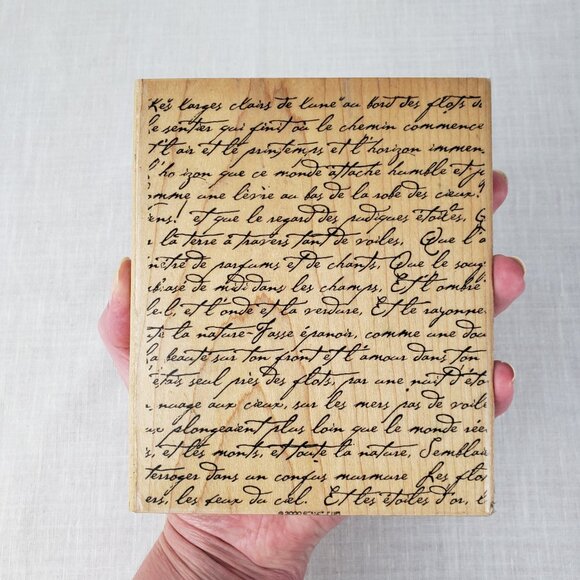 Les larges clairs de lune au bord des flots d
le sentier qui finit où le chemin commence
Et l'air et le printemps et l'horizon immen
L'ho izon que ce monde attache humble et j
omme une lèvre au bas de la robe des cieux!
iens! et que le regard des pudiques étoiles,
r la terre à travers tant de voiles, Que l'a
nétré de parfums et de chants, Que le souf
brasé de midi dans les champs, Et l'ombre
leil, et l'onde et la verdure, Et le rayonne
te la nature Fasse épanoir, comme une dou
La beauté sur ton front et l'amour dans ton
'étais seul près des flots, par une nuit d'éto
nuage aux cieux, sur les mers pas de voile
ux plongeaient plus loin que le monde rée
s, et les monts, et toute la nature, Semblai
terroger dans un confus murmure Les flo
ers, les feux du ciel. Et les étoiles d'or, l
© 2000